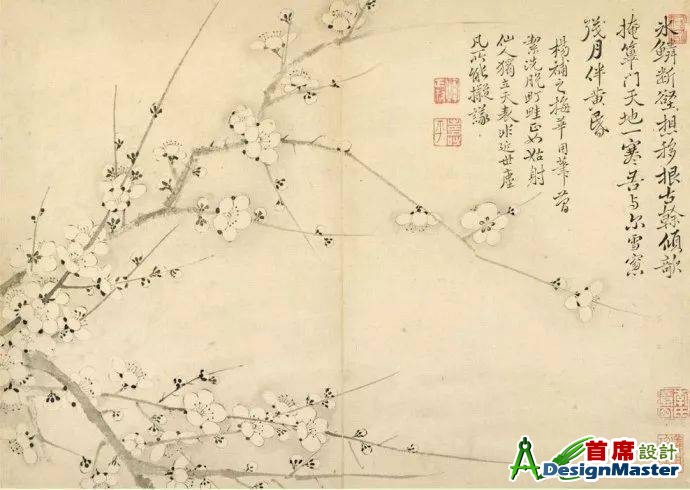 冰鱗斷壑想移根古榦傾欹
掩篳门天地一寒吾与尔雪窓
殘月伴黄昏
楊補之梅華用筆
絜洗脱町畦正如姑射
仙人獨立天表非近世塵
凡所能擬議
首席設計
DesignMaster